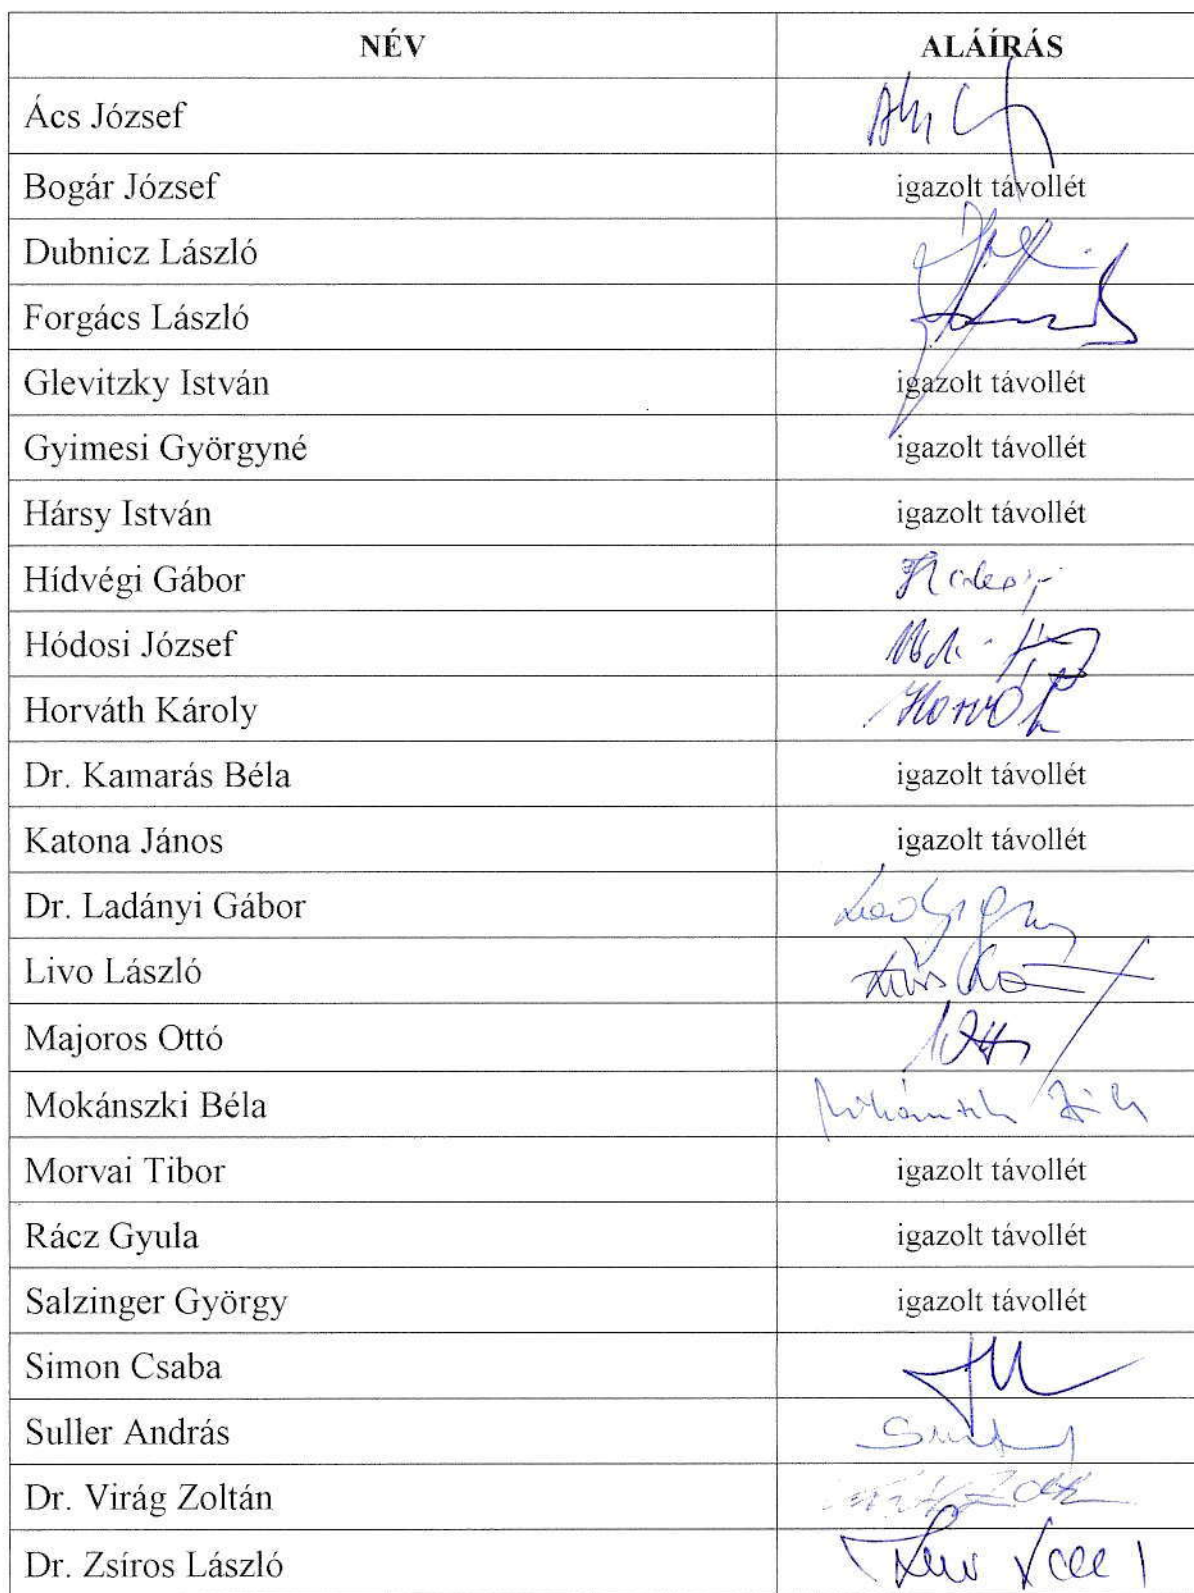 NÉV ALÁÍRÁS
Ács József
Bogár József igazolt távollét
Dubnicz László
Forgács László
Glevitzky István igazolt távollét
Gyimesi Györgyné igazolt távollét
Hársy István igazolt távollét
Hídvégi Gábor
Hódosi József
Horváth Károly Horváth
Dr. Kamarás Béla igazolt távollét
Katona János igazolt távollét
Dr. Ladányi Gábor
Livo László
Majoros Ottó
Mokánszki Béla
Morvai Tibor igazolt távollét
Rácz Gyula igazolt távollét
Salzinger György igazolt távollét
Simon Csaba
Suller András
Dr. Virág Zoltán
Dr. Zsíros László